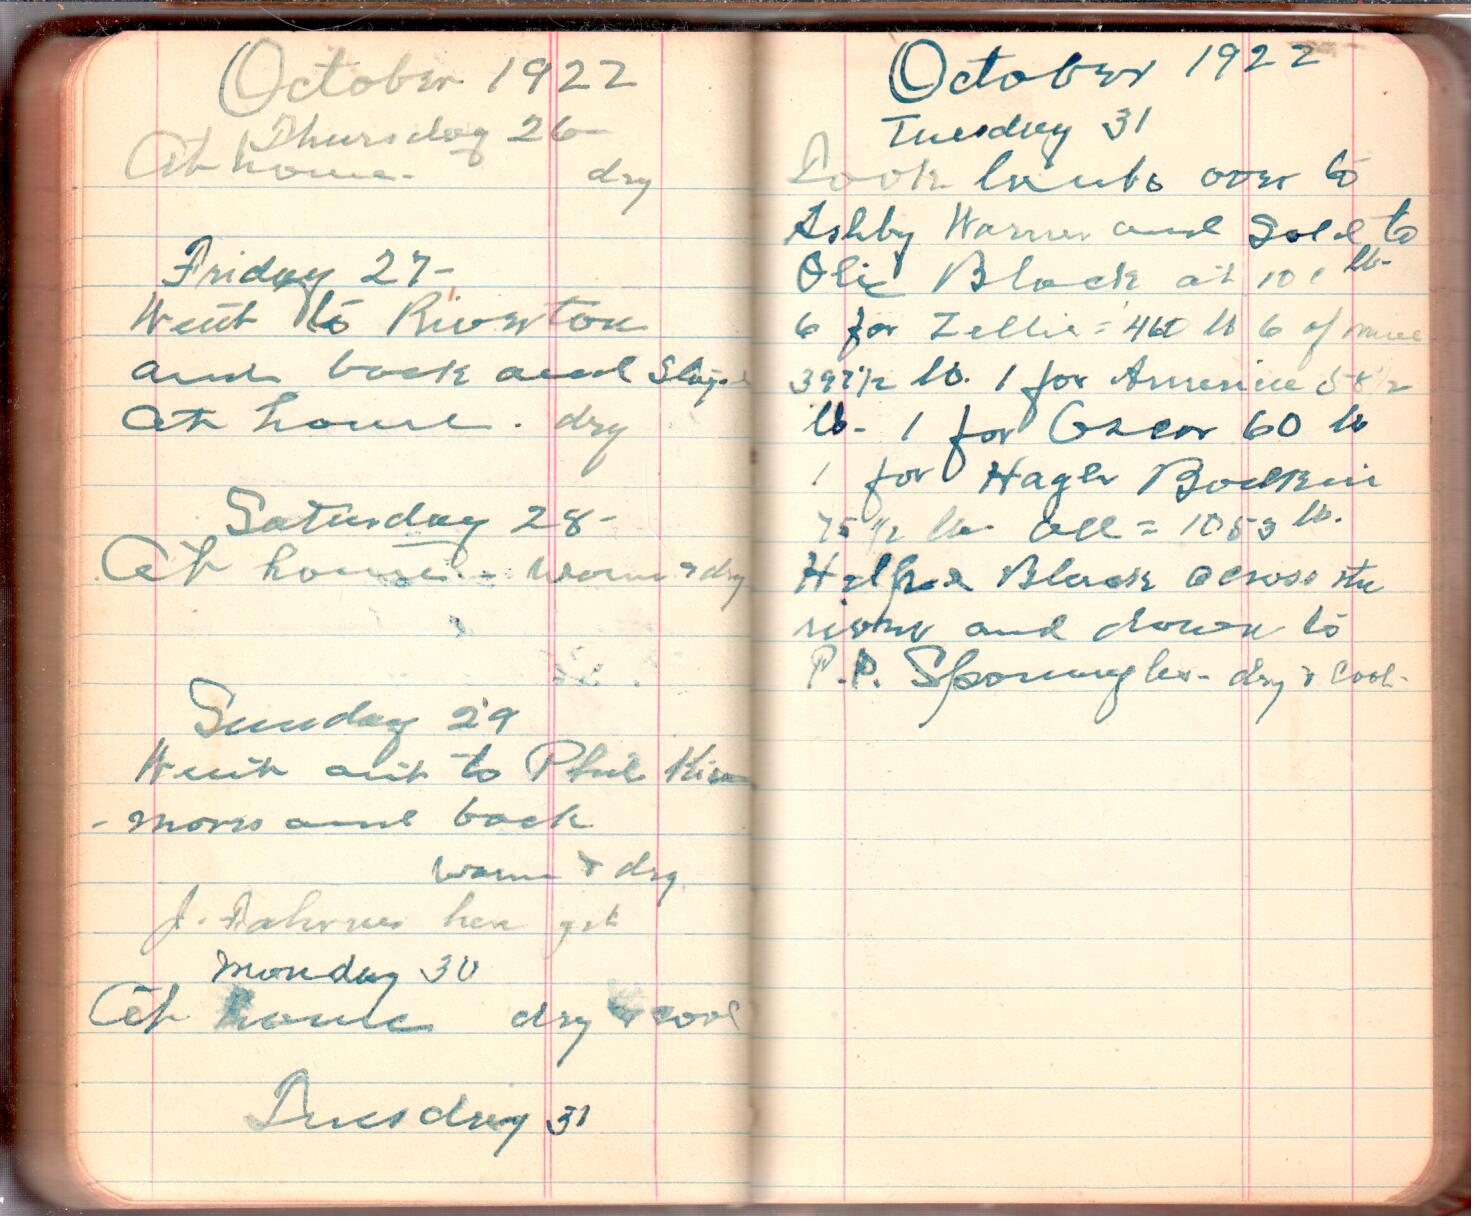 October 1922
Thursday 26-
At home- dry
Friday 27-
Went to Riverton
and back and Stay-d
at home. dry
Saturday 28-
At home - warm & dry
Sunday 29
Went out to Phil Kism
-mores and back
warm & dry
J. here
Monday 30
At home dry & cool
Tuesday 31
October 1922
Tuesday 31
Took lambs over to
Ashby Warner and Sold to
Olie Black at 10¢ lb-
6 for Zellie = 460 lb 6 of mine
397½ lb. 1 for 58½
lb- 1 for Oscar 60 lb
1 for Hagle Bodkin
75½ lb- all = 1053 lb.
Helped Black across the
river and down to
P.P. Sponaugles- dry & Cool-